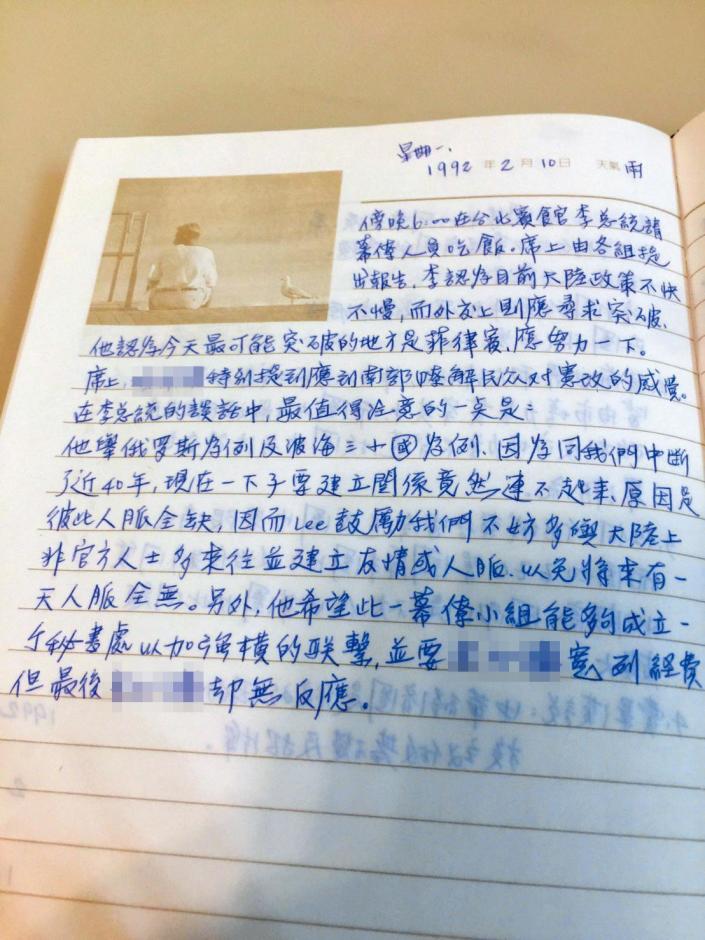 星期一.
1992 年 2 月 10 日 天氣 雨
傍晚6:00在台北賓館官李總統請
幕僚人員吃飯。席上由各組提
出報告,李認為目前大陸政策不快
不慢,而外交上則應尋求突破、
他認為今天最可能突破的地方是菲律賓,應努力一下。
席上, 特別提到應到南部瞭解民众对憲改的感覺。
在李總統的談話中,最值得注意的一点是:
他舉俄罗斯為例及波海三小國為例、因為同我們中斷
了近40年,現在一下子要建立關係竟然連不起來、原因是
彼此人脈全缺,因而Lee鼓勵我們不妨多與大陸上
非官方人士多來往並建立友情或人脈、以免將來有一
天人脈全無。另外,他希望此一幕僚小組能夠成立一
个秘書處以加强橫的联繫,並要 寬列經費
但最後 却無反應。